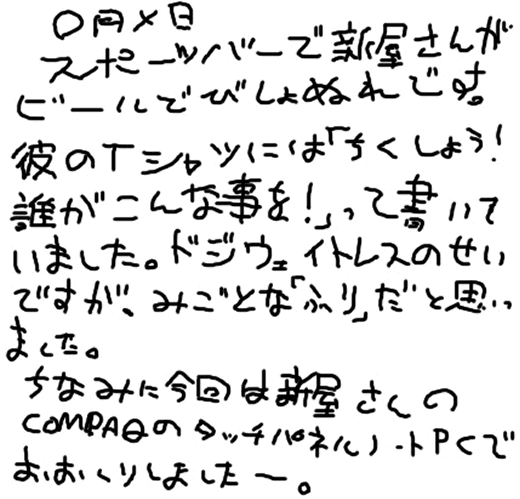 〇月×日
スポーツバーで新屋さんが
ビールでびしょぬれです。
彼のTシャツには「ちくしょう!
誰がこんな事を!」って書いて
いました。ドジウェイトレスのせい
ですが、みごとな「ふり」だと思い
ました。
ちなみに今回は新屋さんの
COMPAQのタッチパネルノートPCで
おおくりしましたー。